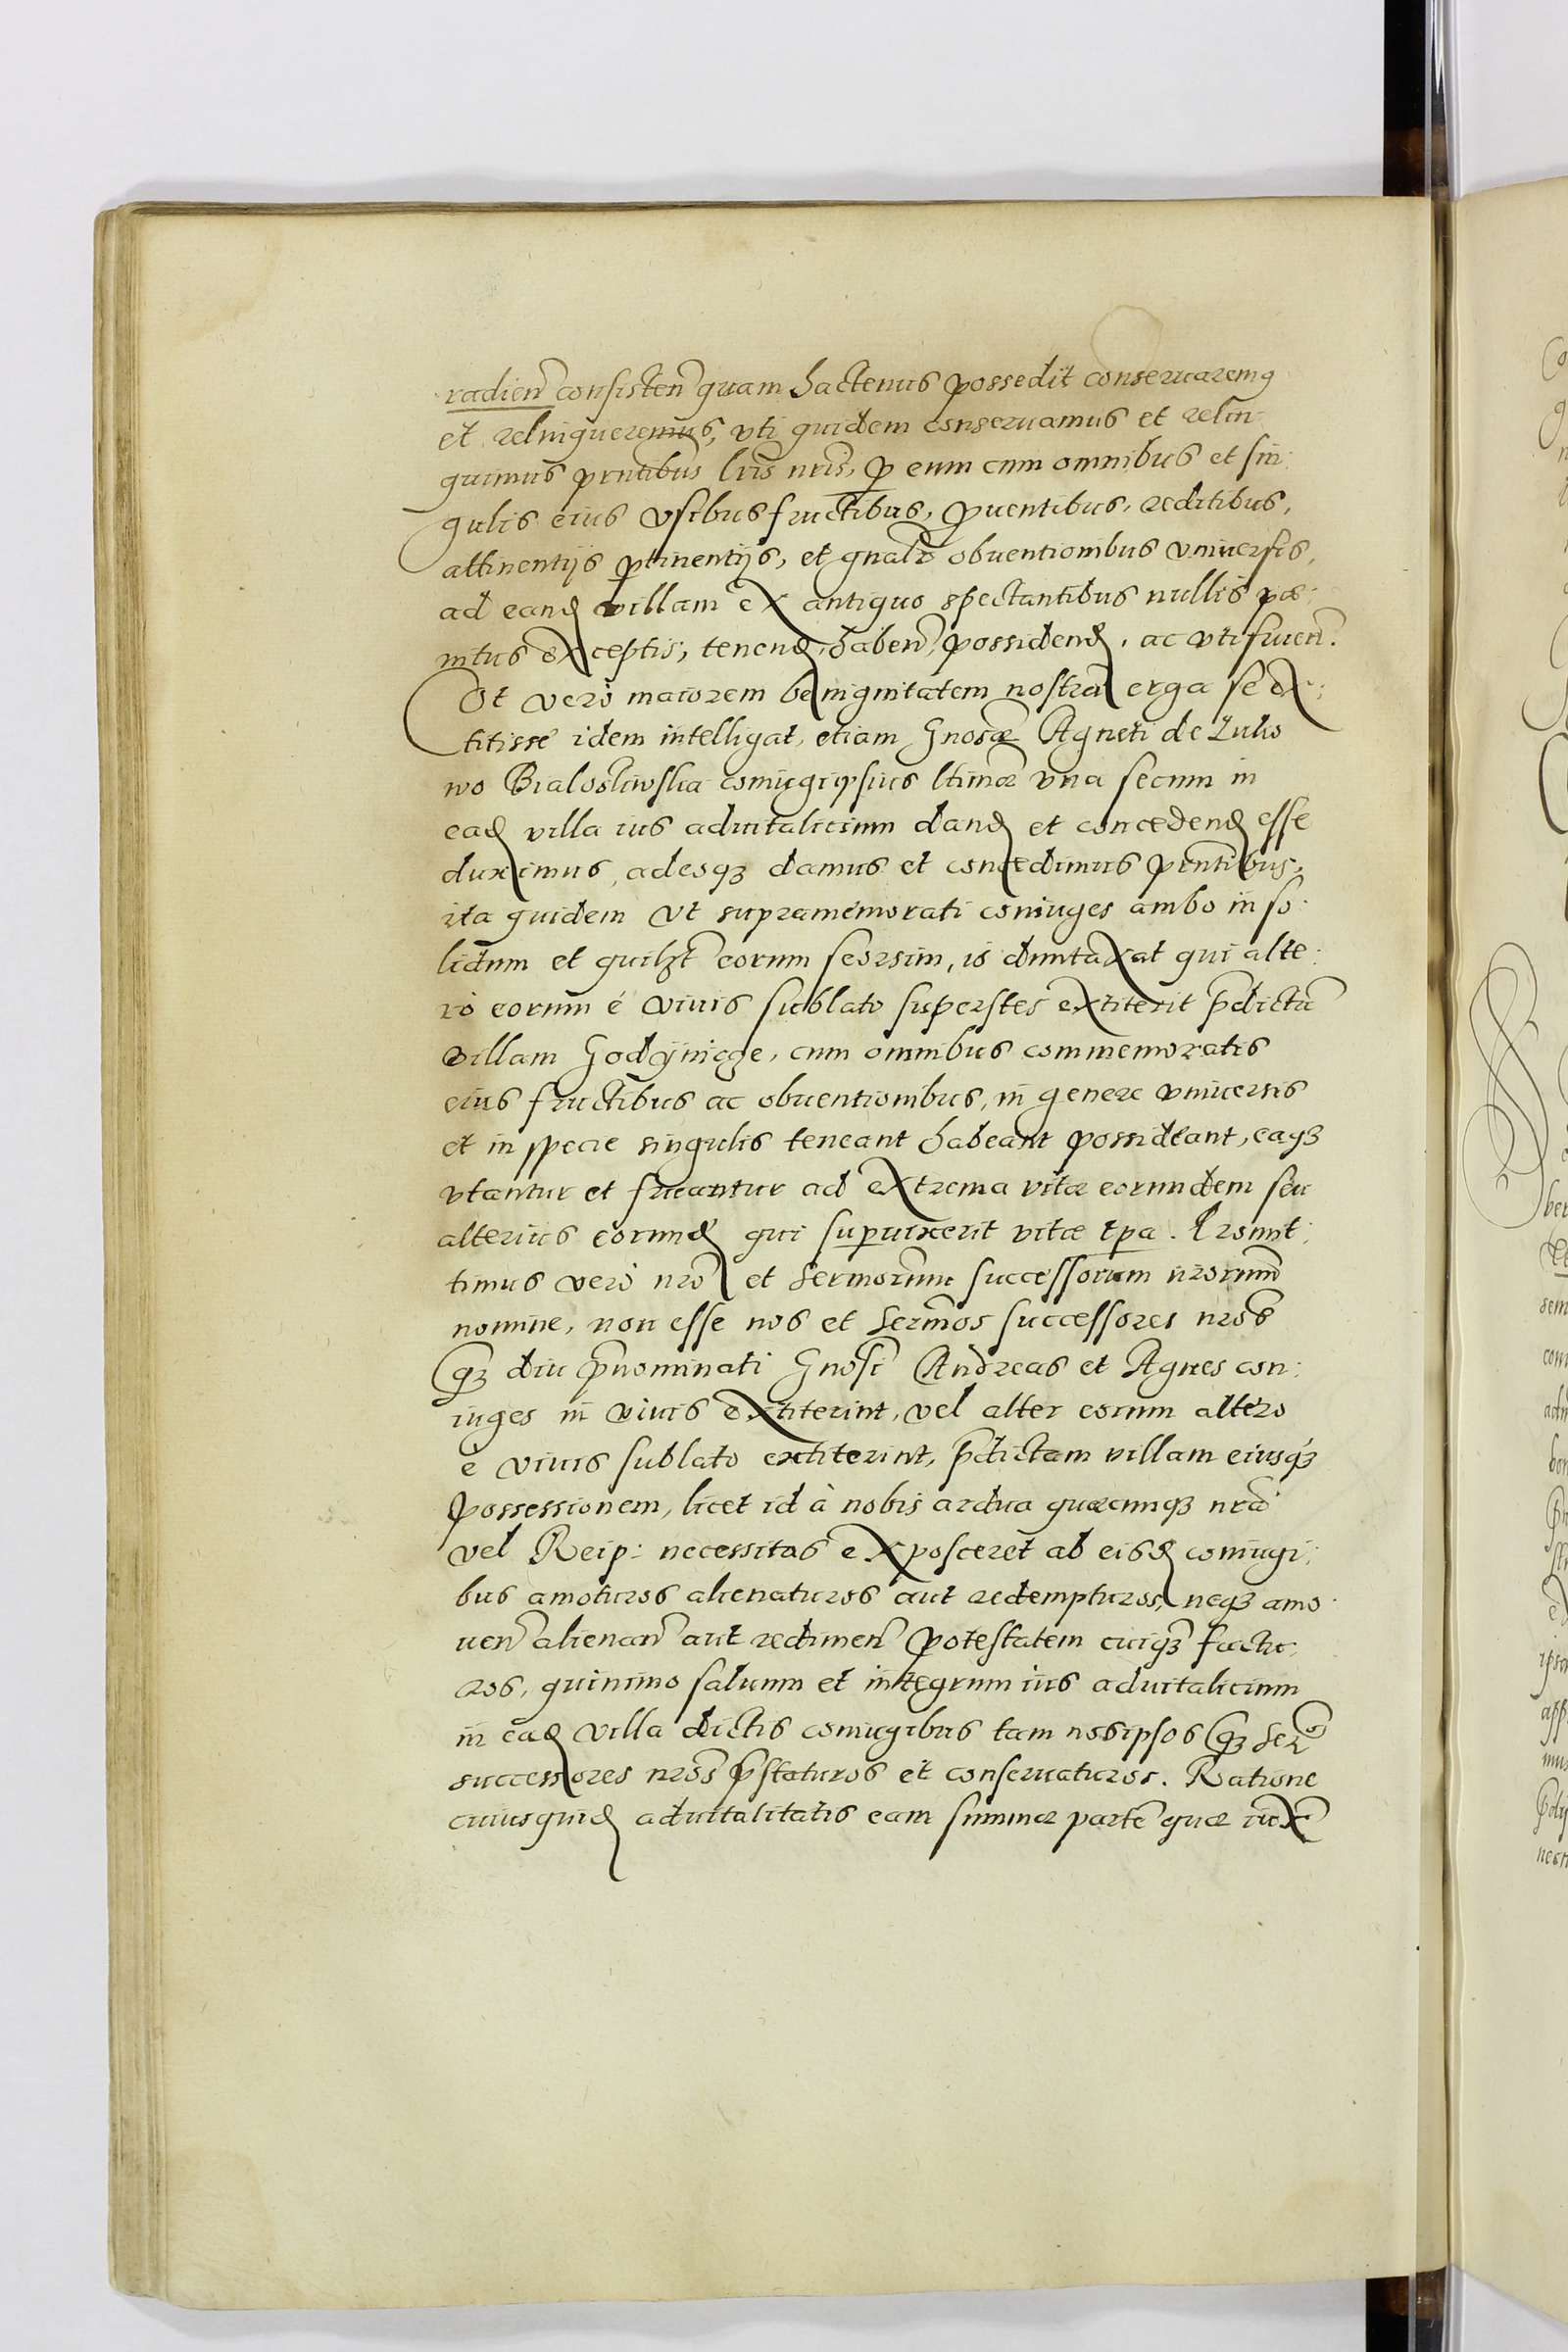 radien̄ consisten̄ quam hactenus possedit conseruaremꝰ
et relinqueremus, vti quidem conseruamus et relin:
quimus prntibus lris nris, ꝑ eum cum omnibus et sin:
gulis eius vsibus fructibus, ꝓuentibus, reditibus,
attinentijs ꝑtinentijs, et gnalr obuentionibus vniuersis,
ad eand villam ex antiquo spectantibus nullis pæ:
nitus exceptis, tenend, haben̄, possidend, ac vtifruen̄.
Vt vero maiorem benignitatem nostram erga se ex:
titisse idem intelligat, etiam Gnosæ Agneti de Zulio
wo Bialosliwska coniugi ipsius ltimæ vna secum in
ead villa ius aduitalicium dand et concedend esse
duximus, adeoqꝫ damus et concedimus prntibus,
ita quidem vt supramemorati coniuges ambo in so:
lidum et quilꝫt eorum seorsim, is duntaxat qui alte:
ro eorum é viuis sublato superstes extiterit p̄dictā
villam Godÿnicze, cum omnibus commemoratis
eius fructibus ac obuentionibus, in genere vniuersis
et in specie singulis teneant habeant possideant, eaqꝫ
vtantur et fruantur ad extrema vitæ eorundem seu
alterius eorund qui superuixerit vitæ tpa. Promit:
timus vero nro et Sermorum successorum nrorum
nomine, non esse nos et Sermos successores nros
qꝫ diu p̄nominati Gnosi Andreas et Agnes con:
iuges in viuis extiterint, vel alter eorum altero
è viuis sublato extiterint, p̄dictam villam eiusqꝫ
possessionem, licet id à nobis ardua quæcunqꝫ nrā
vel Reip: necessitas exposceret ab eisd coniugi:
bus amoturos alienaturos aut redempturos, neqꝫ amo:
uen̄ alienan̄ aut redimen̄ potestatem cuiqꝫ factu:
ros, quinimo saluum et integrum ius aduitalicium
in ead villa dictis coniugibus tam nosipsos qꝫ Serᵒˢ
successores nros p̄staturos et conseruaturos. Ratione
cuiusquid aduitalitatis eam summæ partē quæ iuxᵃ